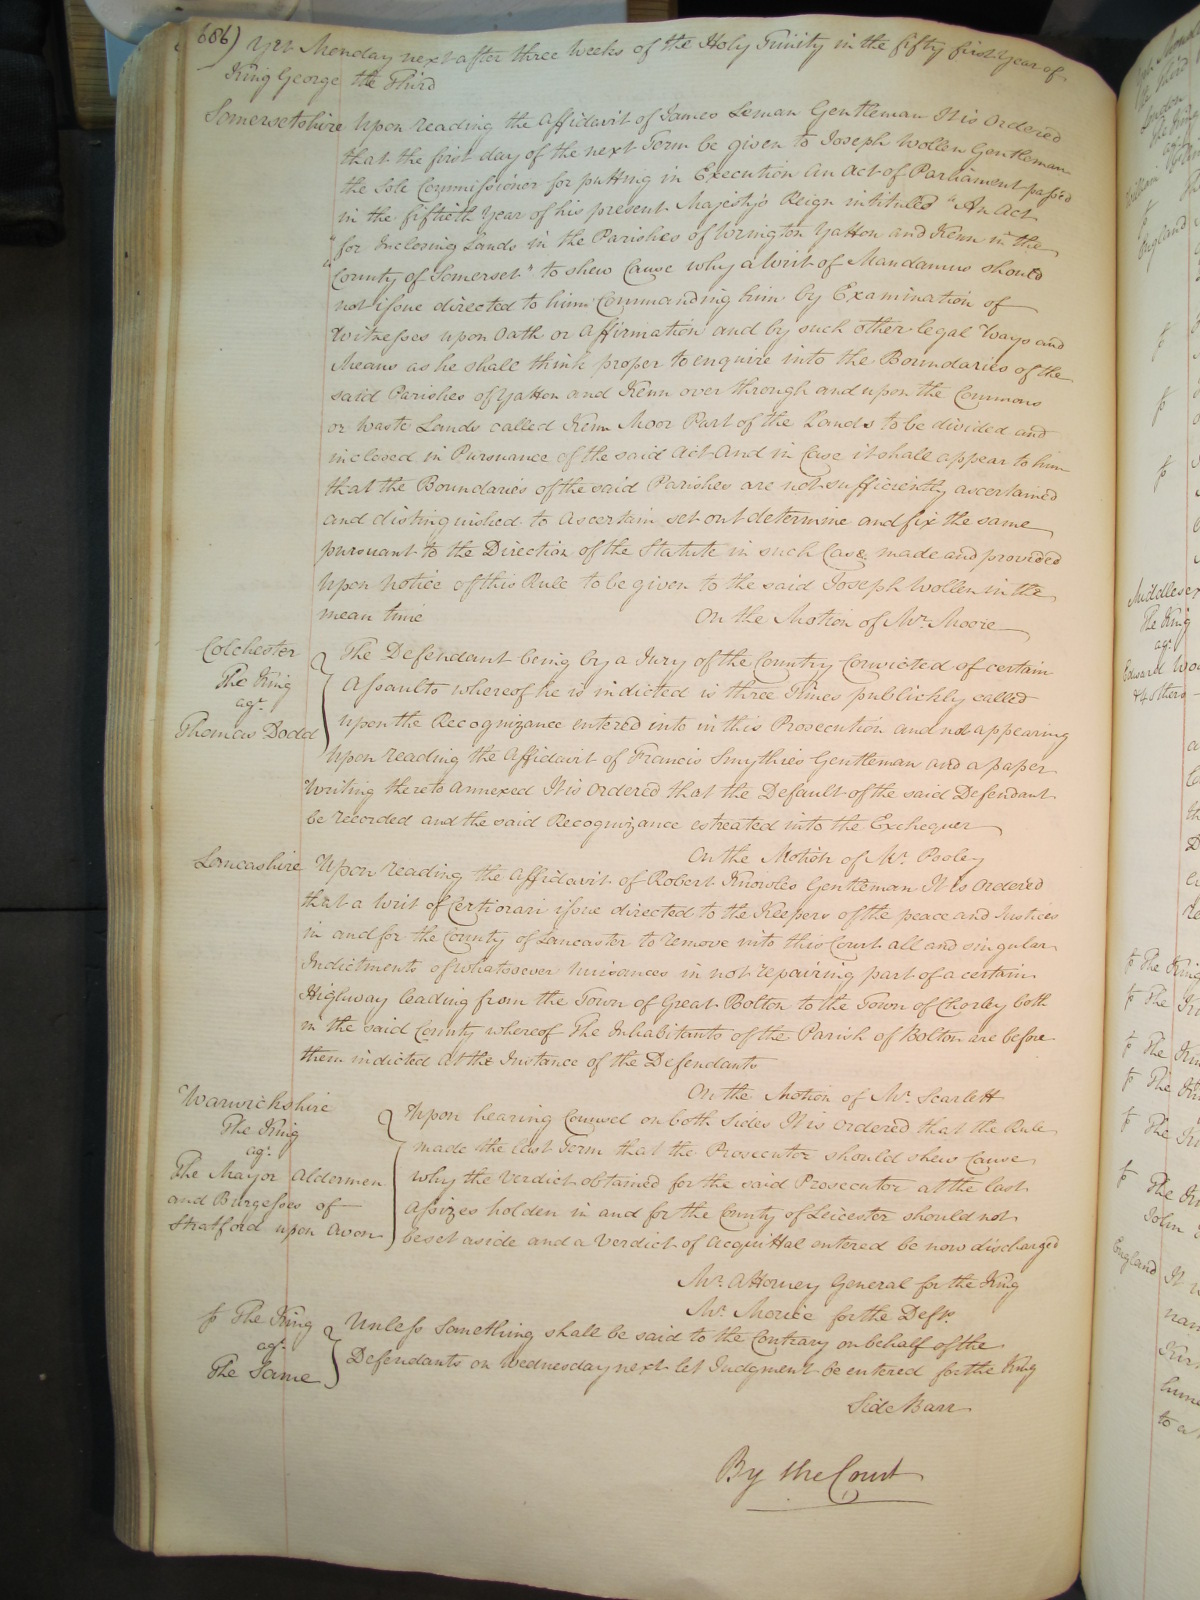 686) Yet Monday next after three Weeks of the Holy Trinity in the fifty first Year of
King George the Third
Somersetshire Upon reading the Affidavit of James Leman Gentleman It is Ordered
that the first day of the next Term be given to Joseph Wollen Gentleman
the Sole Commissioner for putting in Execution an Act of Parliament passed
in the fiftieth Year of his present Majestys Reign intituled "An Act
"for Inclosing Lands in the Parishes of Wrington Yatton and Kenn in the
"County of Somerset" to shew Cause why a Writ of Mandamus should
not issue directed to him Commanding him by Examination of
Witnesses upon Oath or Affirmation and by such other legal Ways and
Means as he shall think proper to enquire into the Boundaries of the
said Parishes of Yatton and Kenn over through and upon the Commons
or Waste Lands called Kenn Moor Part of the Lands to be divided and
inclosed in Pursuance of the said Act And in Case it shall appear to him
that the Boundaries of the said Parishes are not sufficiently ascertained
and distinguished to ascertain set out determine and fix the same
pursuant to the Direction of the Statute in such Case made and provided
Upon Notice of this Rule to be given to the said Joseph Wollen in the
mean time On the Motion of Mr. Moore
Colchester
The King
agt.
Thomas Dodd
The Defendant being by a Jury of the Country Convicted of certain
Assaults whereof he is indicted is three Times publickly called
upon the Recognizance entered into in this Prosecution and not appearing
Upon reading the Affidavit of Francis Smythies Gentleman and a paper
Writing thereto annexed It is Ordered that the Default of the said Defendant
be recorded and the said Recognizance estreated into the Exchequer
On the Motion of Mr. Pooley
Lancashire Upon reading the Affidavit of Robert Knowles Gentleman It is Ordered
that a Writ of Certiorari issue directed to the Keepers of the peace and Justices
in and for the County of Lancaster to remove into this Court all and singular
Indictments of whatsoever Nuisances in not repairing part of a certain
Highway leading from the Town of Great Bolton to the Town of Chorley both
in the said County whereof The Inhabitants of the Parish of Bolton are before
them indicted At the Instance of the Defendants
On the Motion of Mr. Scarlett
Warwickshire
The King
agt.
The Mayor Aldermen
and Burgesses of
Stratford upon Avon
Upon hearing Counsel on both Sides It is Ordered that the Rule
made the last Term that the Prosecutor should shew Cause
why the Verdict obtained for the said Prosecutor at the last
Assizes holden in and for the County of Leicester should not
be set aside and a Verdict of Acquittal entered be now discharged
Mr. Attorney General for the King
Mr. Morice for the Defts.
The King
agt.
The Same
Unless Something shall be said to the Contrary on behalf of the
Defendants on Wednesday next let Judgment be entered for the King
Side Barr
By the Court